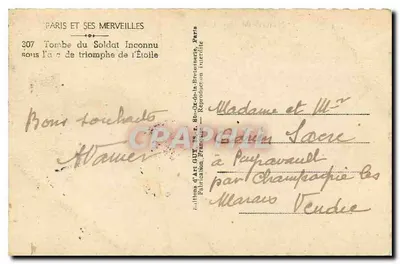 PARIS ET SES MERVEILLES
307 Tombe du Soldat Inconnu
sous l'arc de triomphe de l'Étoile
Bons souhaits
Editions d'Art GUY, Paris
Fabrication Reproduction interdite
CPARAMA
Madame et Mr
Sacre
à Puyravault
par Champagné les
Marais Vendée